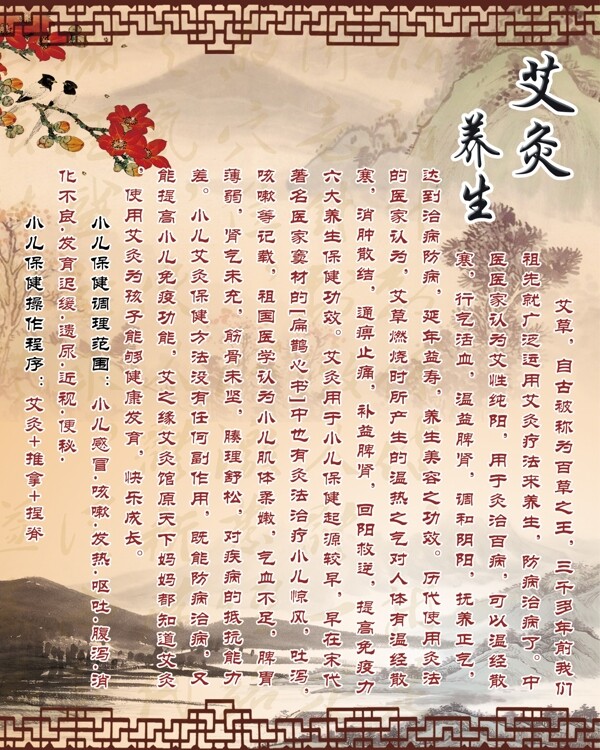 艾灸
养生
艾草，自古被称为百草之王，三千多年前我们
祖先就广泛运用艾灸疗法来养生，防病治病了。中
医医家认为艾性纯阳，用于灸治百病，可以温经散
寒，行气活血，温益脾肾，调和阴阳，抚养正气，
达到治病防病，延年益寿，养生美容之功效。历代使用灸法
的医家认为，艾草燃烧时所产生的温热之气对人体有温经散
寒，消肿散结，通痹止痛，补益脾肾，回阳救逆，提高免疫力
六大养生保健功效。艾灸用于小儿保健起源较早，早在宋代
著名医家窦材的[扁鹊心书]中也有灸法治疗小儿惊风，吐泻，
咳嗽等记载，祖国医学认为小儿肌体柔嫩，气血不足，脾胃
薄弱，肾气未充，筋骨未坚，腠理舒松，对疾病的抵抗能力
差。小儿艾灸保健方法没有任何副作用，既能防病治病，又
能提高小儿免疫功能，艾之缘艾灸馆原天下妈妈都知道艾灸
，使用艾灸为孩子能够健康发育，快乐成长。
小儿保健调理范围：小儿感冒·咳嗽·发热·呕吐·腹泻·消
化不良·发育迟缓·遗尿·近视·便秘·
小儿保健操作程序：艾灸+推拿+捏脊